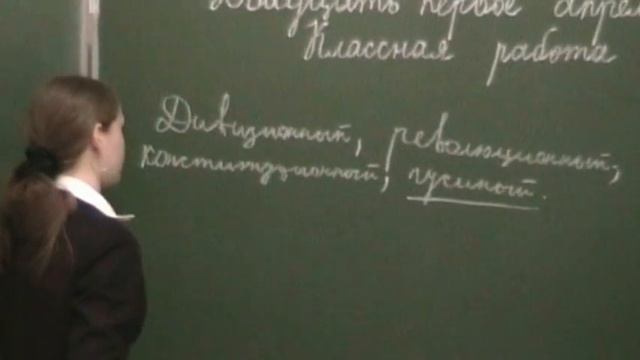 Двадцать первое апрел
Классная работа
Дивизионный, революционный,
конституционный, гусиный.